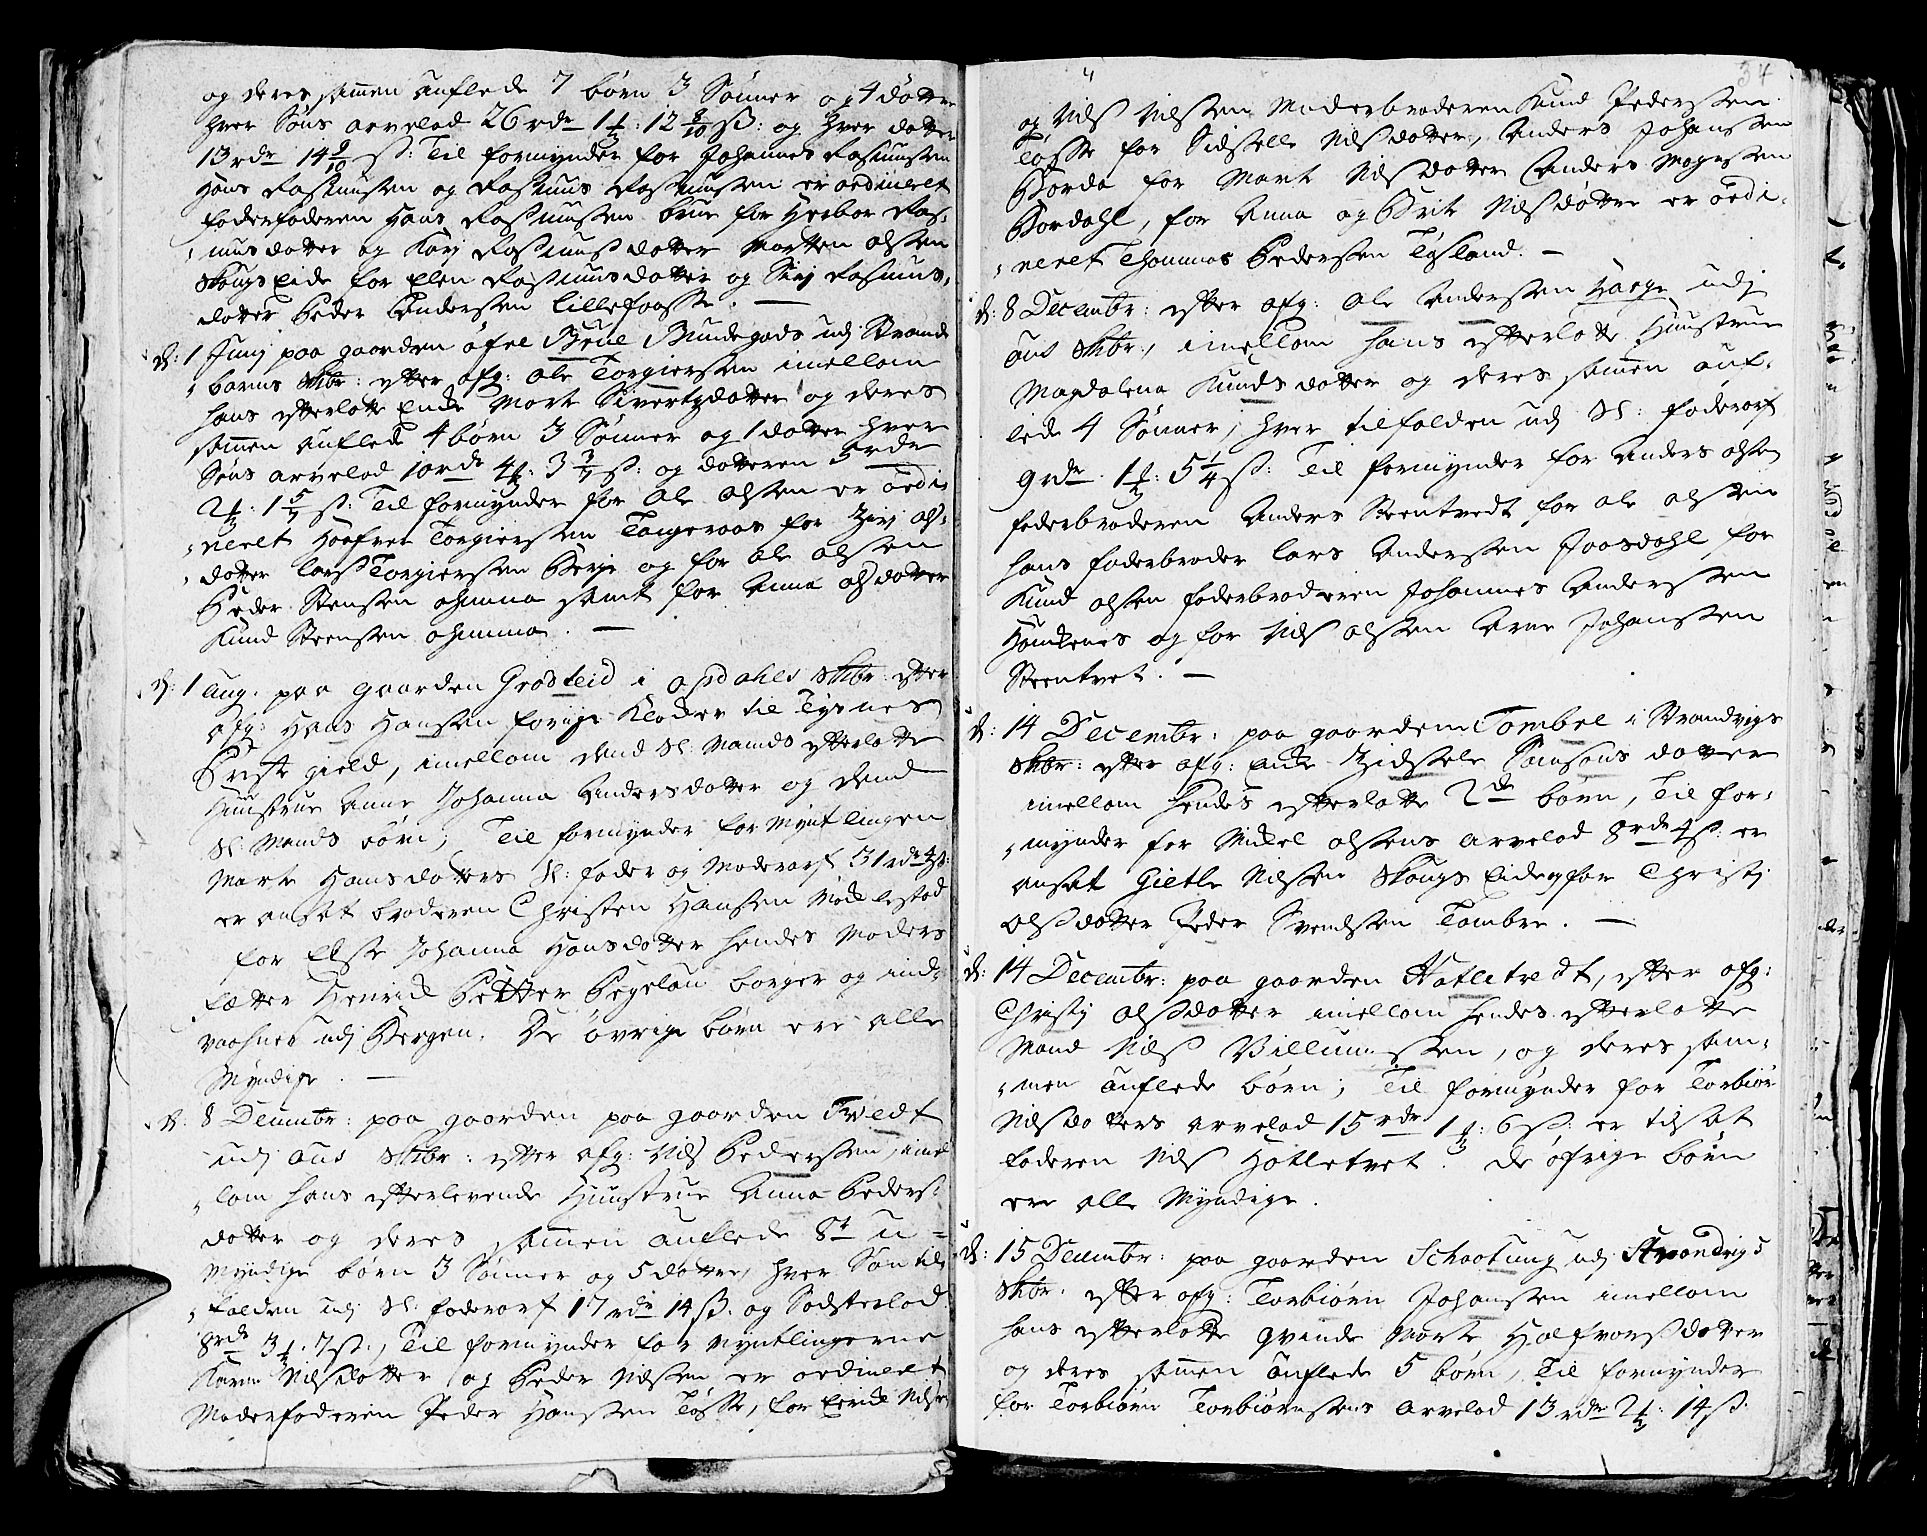 og deres samen auflede 7 børn 3 Sønner og 4 døtre
hver Søns arvelod 26 rdr 1 ½: 12 8/10 ß: og hver dotter
13 rdr 14 9/10 ß: Til formynder for Johannes Rasmussen
Hans Rasmussen og Rasmus Rasmussen er ordineret
faderfaderen Hans Rasmussen Brue for Herbor Ras-
musdotter og Karj Rasmusdotter Morten olssen
Skougs Eide for Elen Rasmusdotter og Sirj Rasmus-
dotter Peder Andersen Lillefosse. —
d: 1 Junj paa gaarden øfre Brue Bundegods udj Strande
barms Skbr: efter afg: Ole Torgiersen imellom
hans efterlatte Enke Marte Sivertzdotter og deres
samen auflede 4 børn 3 Sønner og 1 dotter hver
Søns arvelod 10 rdr 4 ℔: 3 3/7 ß: og dotteren 5 rdr
2 ℔: 1 5/7 ß: Til formynder for Ole olssen er ordi-
neret Hafver Torgiersen Torgeraas for Zirj ols-
dotter Lars Torgiersen Berge og for Ole olssen
Peder Stensen ohmma samt for Anna olsdotter
Knud Steensen ohmma. —
d: 1 aug. paa gaarden Grøsteid i opdahls Skbr: efter
afg: Hans Hansen forrige Klocker til Tysnes
Præstegield, imellom dend Sl: Mands efterlatte
Hustrue Anne Johanna Andersdotter og dend
Sl: Mands børn, Til formynder for Myntlingen
Marte Hansdotters Sl: fader og Moderarf 31 rdr 4 ß:
er ansat broderen Christen Hansen Wedlestad
for Else Johanna Hansdotter hendes Moders
fætter Henrick Petter Pegelau borger og ind-
vaahner udj Bergen. De øvrige børn ere alle
Myndige. —
d: 8 Decembr: paa gaarden paa gaarden Tvedt
udj ous Skbr: efter afg: Nils Pedersen, imel-
lom hans efterlevende Hustrue Anna Peders-
dotter og deres samen auflede 8te u-
myndige børn 3 Sønner og 5 døttre, hver Søn til-
falden udj Sl: faderarf 17 rdr 14 ß. og Søsterlod
8 rdr 3 ℔: 7 ß., Til formynder for Myntlingerne
Karen Nilsdotter og Peder Nilsen er ordineret
Moderfaderen Peder Hansen Tøsse, for Erick Nilsen
34
og Nils Nilssen Moderbroderen Knud Pedersen
Tøsse for Sidselle Nilsdotter, Anders Johansen
Børda for Marte Nilsdotter Anders Mogensen
Bordahl, for Anna og Brite Nilsdøttre er ordi-
neret Thommas Pedersen Tysland. —
d: 8 Decembr: efter afg: Ole Andersen Hauge udj
ous Skbr:, imellom hans efterlatte Hustrue
Magdalena Knudsdotter og deres samen auf-
lede 4 Sønner, hver tilfalden udj Sl: faderarf
9 rdr 1 ℔: 5 1/4 ß: Til formynder for Anders olsen
faderbroderen Anders Steentvedt for Ole olssen
hans faderbroder Lars Andersen Joosdahl, for
Knud olsen faderbroderen Johannes Andersen
Hamkenes og for Nils olssen Arne Johanssen
Steentvet. —
d: 14 Decembr: paa gaarden Tombre i Strandvigs
Skbr: efter afg: Enke Zidsele Samsons dotter
imellom hendes efterlatte 2de børn, Til for-
mynder for Mickel olssens arvelod 8 rdr 4 ß: er
ansat Gietle Nilsen Skougs Eide, for Christj
olsdotter Peder Svendsen Tombre. —
d: 14 Decembr: paa gaarden Hatletvedt, efter afg:
Christj olsdotter imellom hendes efterlatte
Mand Nils Villumssen, og deres sam-
men auflede børn; Til formynder for Torbiør
Nilsdotters arvelod 15 rdr 1 ℔: 6 ß: er tilsat
faderen Nils Hatletvet. De øfrige børn
ere alle Myndige.
d: 15 Decembr: paa gaarden Schaatung udj Strandvigs
Skbr. efter afg: Torbiørn Johansen imellom
hans efterlatte Qvinde Marte Halfvorsdotter
og deres samen auflede 5 børn, Til formynder
for Torbiørn Torbiørnsens arvelod 13 rdr 2 ℔: 14 ß.